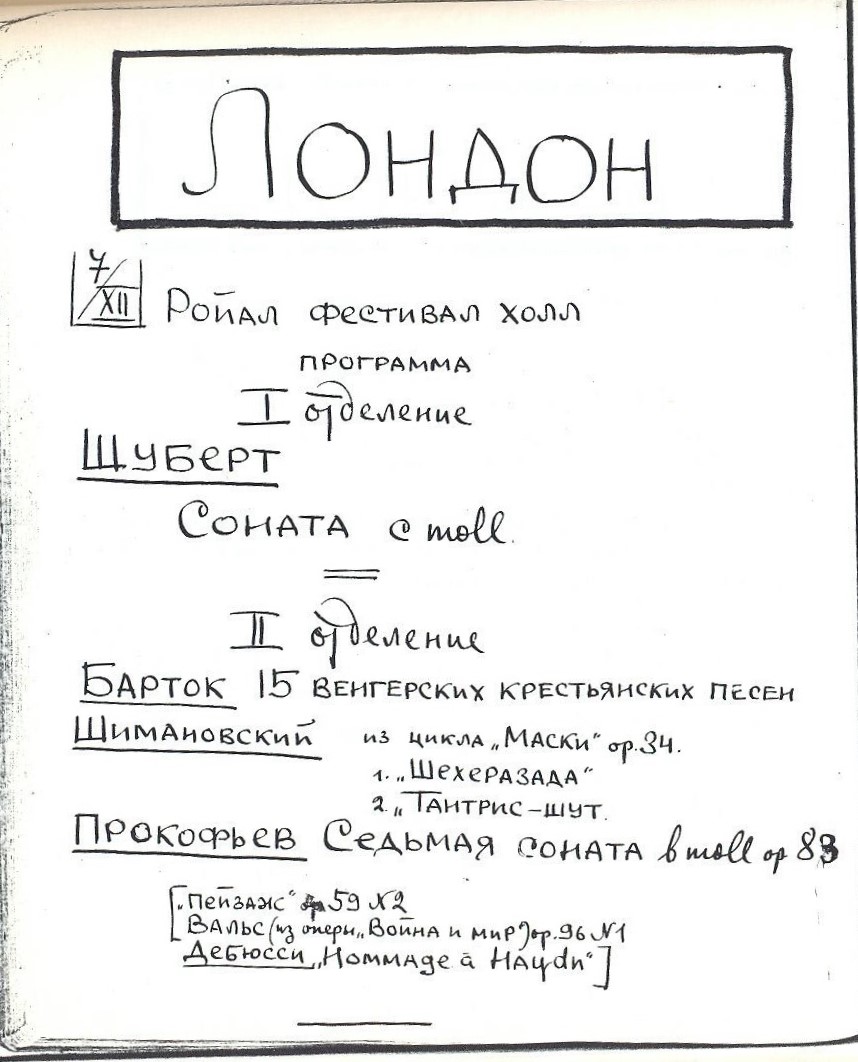 Лондон
7/XII Ройал фестивал холл
программа
I отделение
Шуберт
Соната c moll.
II отделение
Барток 15 венгерских крестьянских песен
Шимановский из цикла „Маски“ op. 34.
1. „Шехеразада“
2. „Тантрис-шут.
Прокофьев Седьмая соната b moll op 83
[„Пейзаж“ op 59 N2
Вальс (из оперы „Война и мир) op. 96 N1
Дебюсси „Hommage à Haydn“]